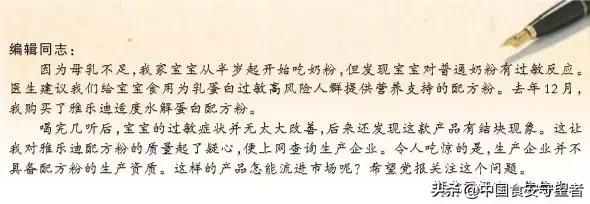 编辑同志：
因为母乳不足，我家宝宝从半岁起开始吃奶粉，但发现宝宝对普通奶粉有过敏反应。
医生建议我们给宝宝食用为乳蛋白过敏高风险人群提供营养支持的配方粉。去年12月，
我购买了雅乐迪适度水解蛋白配方粉。
喝完几听后，宝宝的过敏症状并无太大改善，后来还发现这款产品有结块现象。这让
我对雅乐迪配方粉的质量起了疑心，便上网查询生产企业。令人吃惊的是，生产企业并不
具备配方粉的生产资质。这样的产品怎能流进市场呢？希望党报关注这个问题。
头条 @中国食安守望者